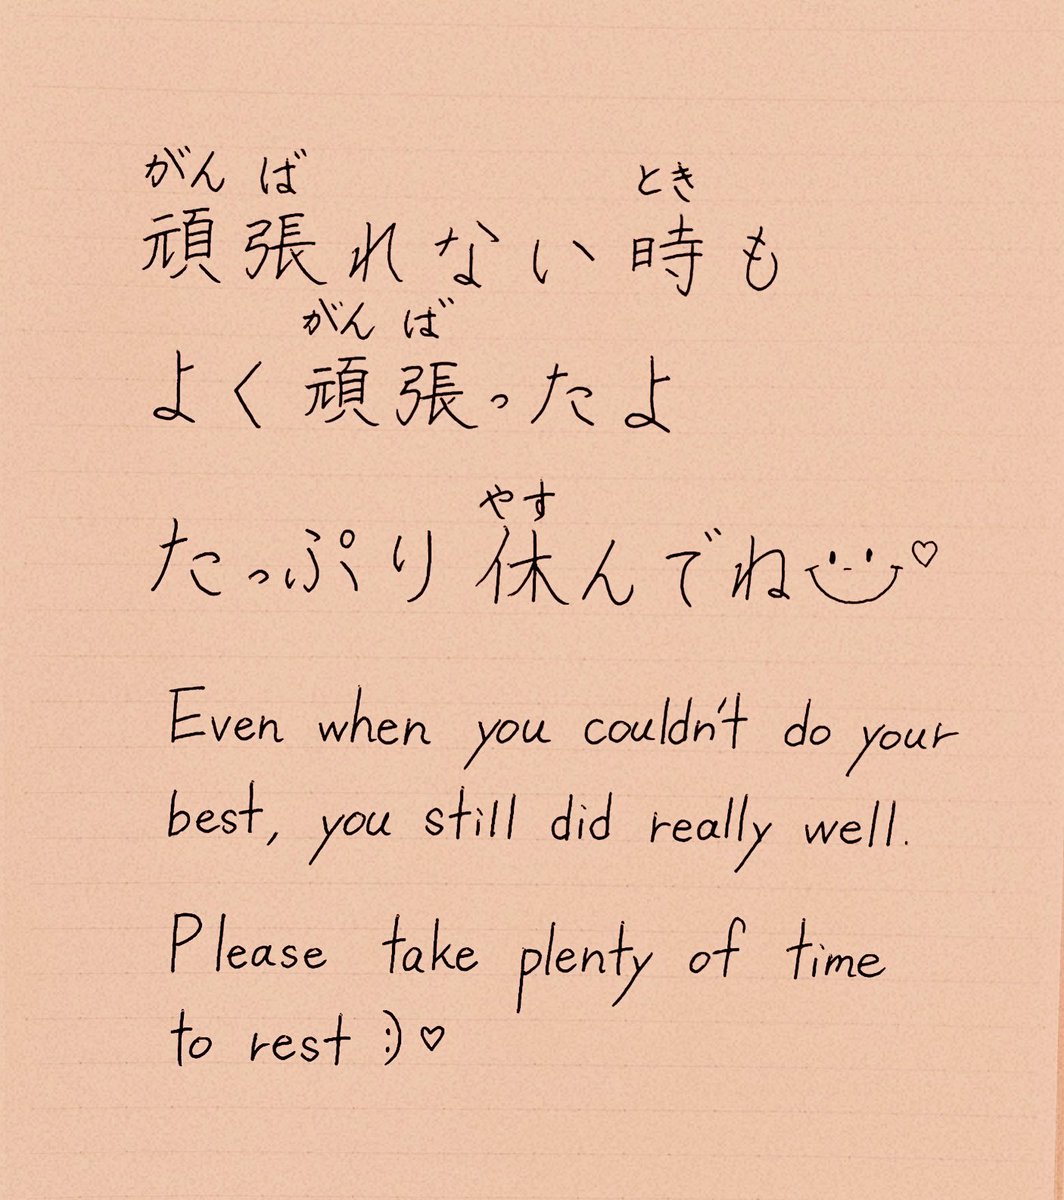 がんば とき
頑張れない時も
がんば
よく頑張ったよ
やす
たっぷり休んでね
Even when you couldn't do your
best, you still did really well.
Please take plenty of time
to rest :) ♡